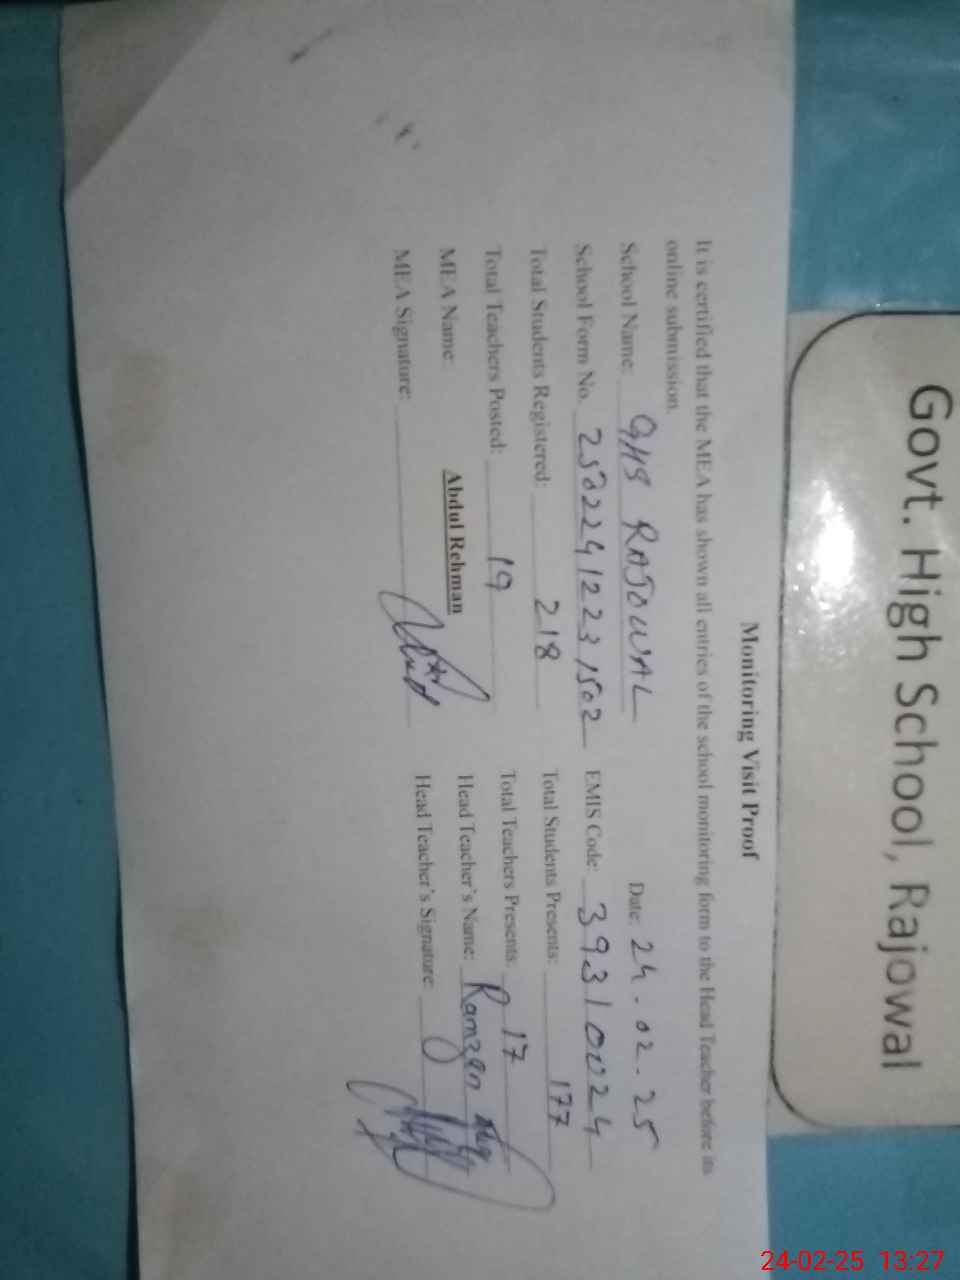 Govt. High School, Rajowal
Monitoring Visit Proof
It is certified that the MEA has shown all entries of the school monitoring form to the Head Teacher before its
online submission.
School Name: GHS RAJOWAL Date: 24.02.25
School Form No. 25022412231502 EMIS Code: 39310024
Total Students Registered: 218 Total Students Presents: 177
Total Teachers Posted: 19 Total Teachers Presents: 17
MEA Name: Abdul Rehman Head Teacher's Name: Ramzan
MEA Signature: Head Teacher's Signature:
24-02-25 13:27